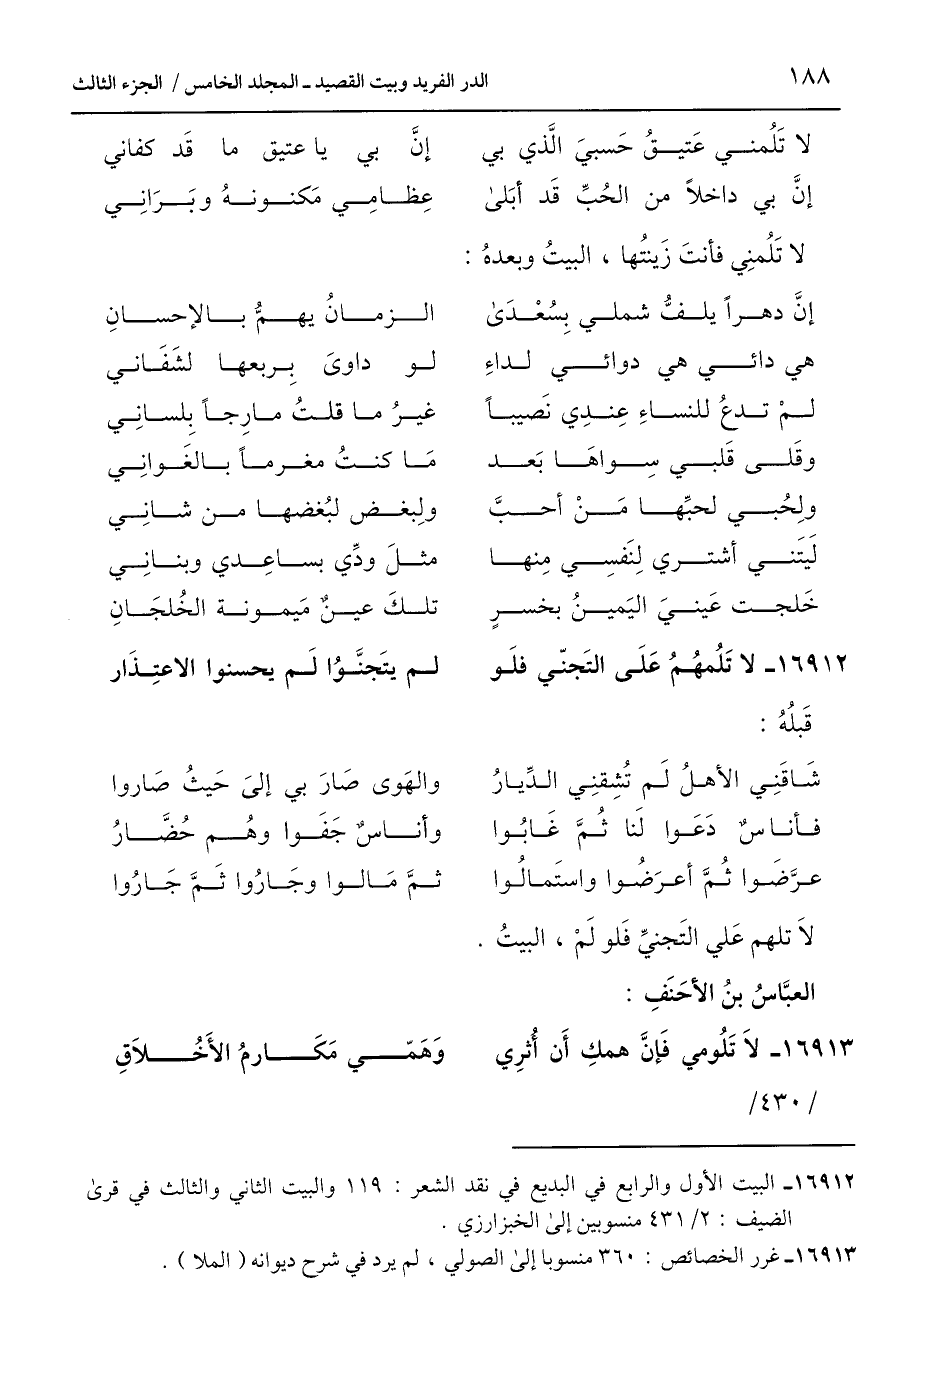 ١٨٨ الدر الفريد وبيت القصيد ـ المجلد الخامس / الجزء الثالث
لا تَلُمنـي عَتيـقُ حَسبيَ الَّذي بي إنَّ بي يا عتيق ما قَد كفاني
إنَّ بي داخلاً من الحُبِّ قَد أَبَلىٰ عِظامـي مَكنـونـهُ وبَـرَانِـي
لا تَلُمنِي فأنتَ زَينتُها ، البيتُ وبعدهُ :
إنَّ دهـراً يلـفُّ شملـي بِسُعْـدَىٰ الـزمـانُ يهـمُّ بـالإحسـانِ
هي دائـي هي دوائـي لـداءِ لـو داوىَ بِـربعهـا لشَفَـاني
لـمْ تـدعُ للنسـاءِ عِنـدِي نَصِيبـاً غيـرُ مـا قلـتُ مـازِحـاً بلسـانِي
وقلـى قَلبـي سِـواهَـا بَعـد مَـا كنـتُ مغـرمـاً بـالغَـوانِي
ولِحُبـي لحبِّهـا مَـنْ أحـبَّ ولبغـض لبُغضهـا مـن شـانـي
لَيتنـي أشتـري لِنَفسـي مِنهـا مثـلَ ودِّي بسـاعِـدي وبنـانِـي
خَلجـت عَينـيَ اليَميـنُ بخيـرٍ تلـكَ عيـنٌ مَيمـونـة الخُلجَـانِ
١٦٩١٢ـ لا تَلُمهُـمُ عَلَـى التَجنّـي فلـو لـم يتَجنَّـوُا لَـم يحسنوا الاعتِـذَار
قَبلُهُ :
شَاقَنِي الأهلُ لَم تُشِقنِي الدِّيارُ والهَوى صَارَ بي إلىَ حَيثُ صَاروا
فـأنـاسٌ دَعَـوا لَنا ثُـمَّ غَـابُـوا وأنـاسٌ جَفَـوا وهُـم حُضَّـارُ
عـرَّضَـوا ثُـمَّ أعـرَضُـوا واستمـالُـوا ثـمَّ مَـالـوا وجَـازُوا ثَـمَّ جَـارُوا
لاَ تلهم عَلى التَجنيِّ فَلو لَمْ ، البيتُ .
العبَّاسُ بنُ الأحَنَفِ :
١٦٩١٣ـ لاَ تَلُومي فَإنَّ همكِ أن أُثري وَهَمّـي مَكَـارمُ الأَخْـلاَقِ
/٤٣٠/
١٦٩١٢ـ البيت الأول والرابع في البديع في نقد الشعر : ١١٩ والبيت الثاني والثالث في قرىٰ
الضيف : ٢/ ٤٣١ منسوبين إلىٰ الخبزارزي .
١٦٩١٣ـ غرر الخصائص : ٣٦٠ منسوبا إلىٰ الصولي ، لم يرد في شرح ديوانه ( الملا ) .